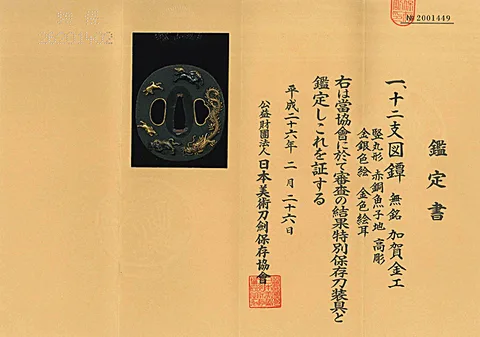 № 2001449
鑑定書
一、十二支図鐔 無銘 加賀金工
竪丸形 赤銅魚子地 高彫
金銀色絵 金色絵耳
右は當協會に於て審査の結果特別保存刀装具と
鑑定しこれを証する
平成二十六年 二月 二十六日
公益財團法人 日本美術刀劍保存協會